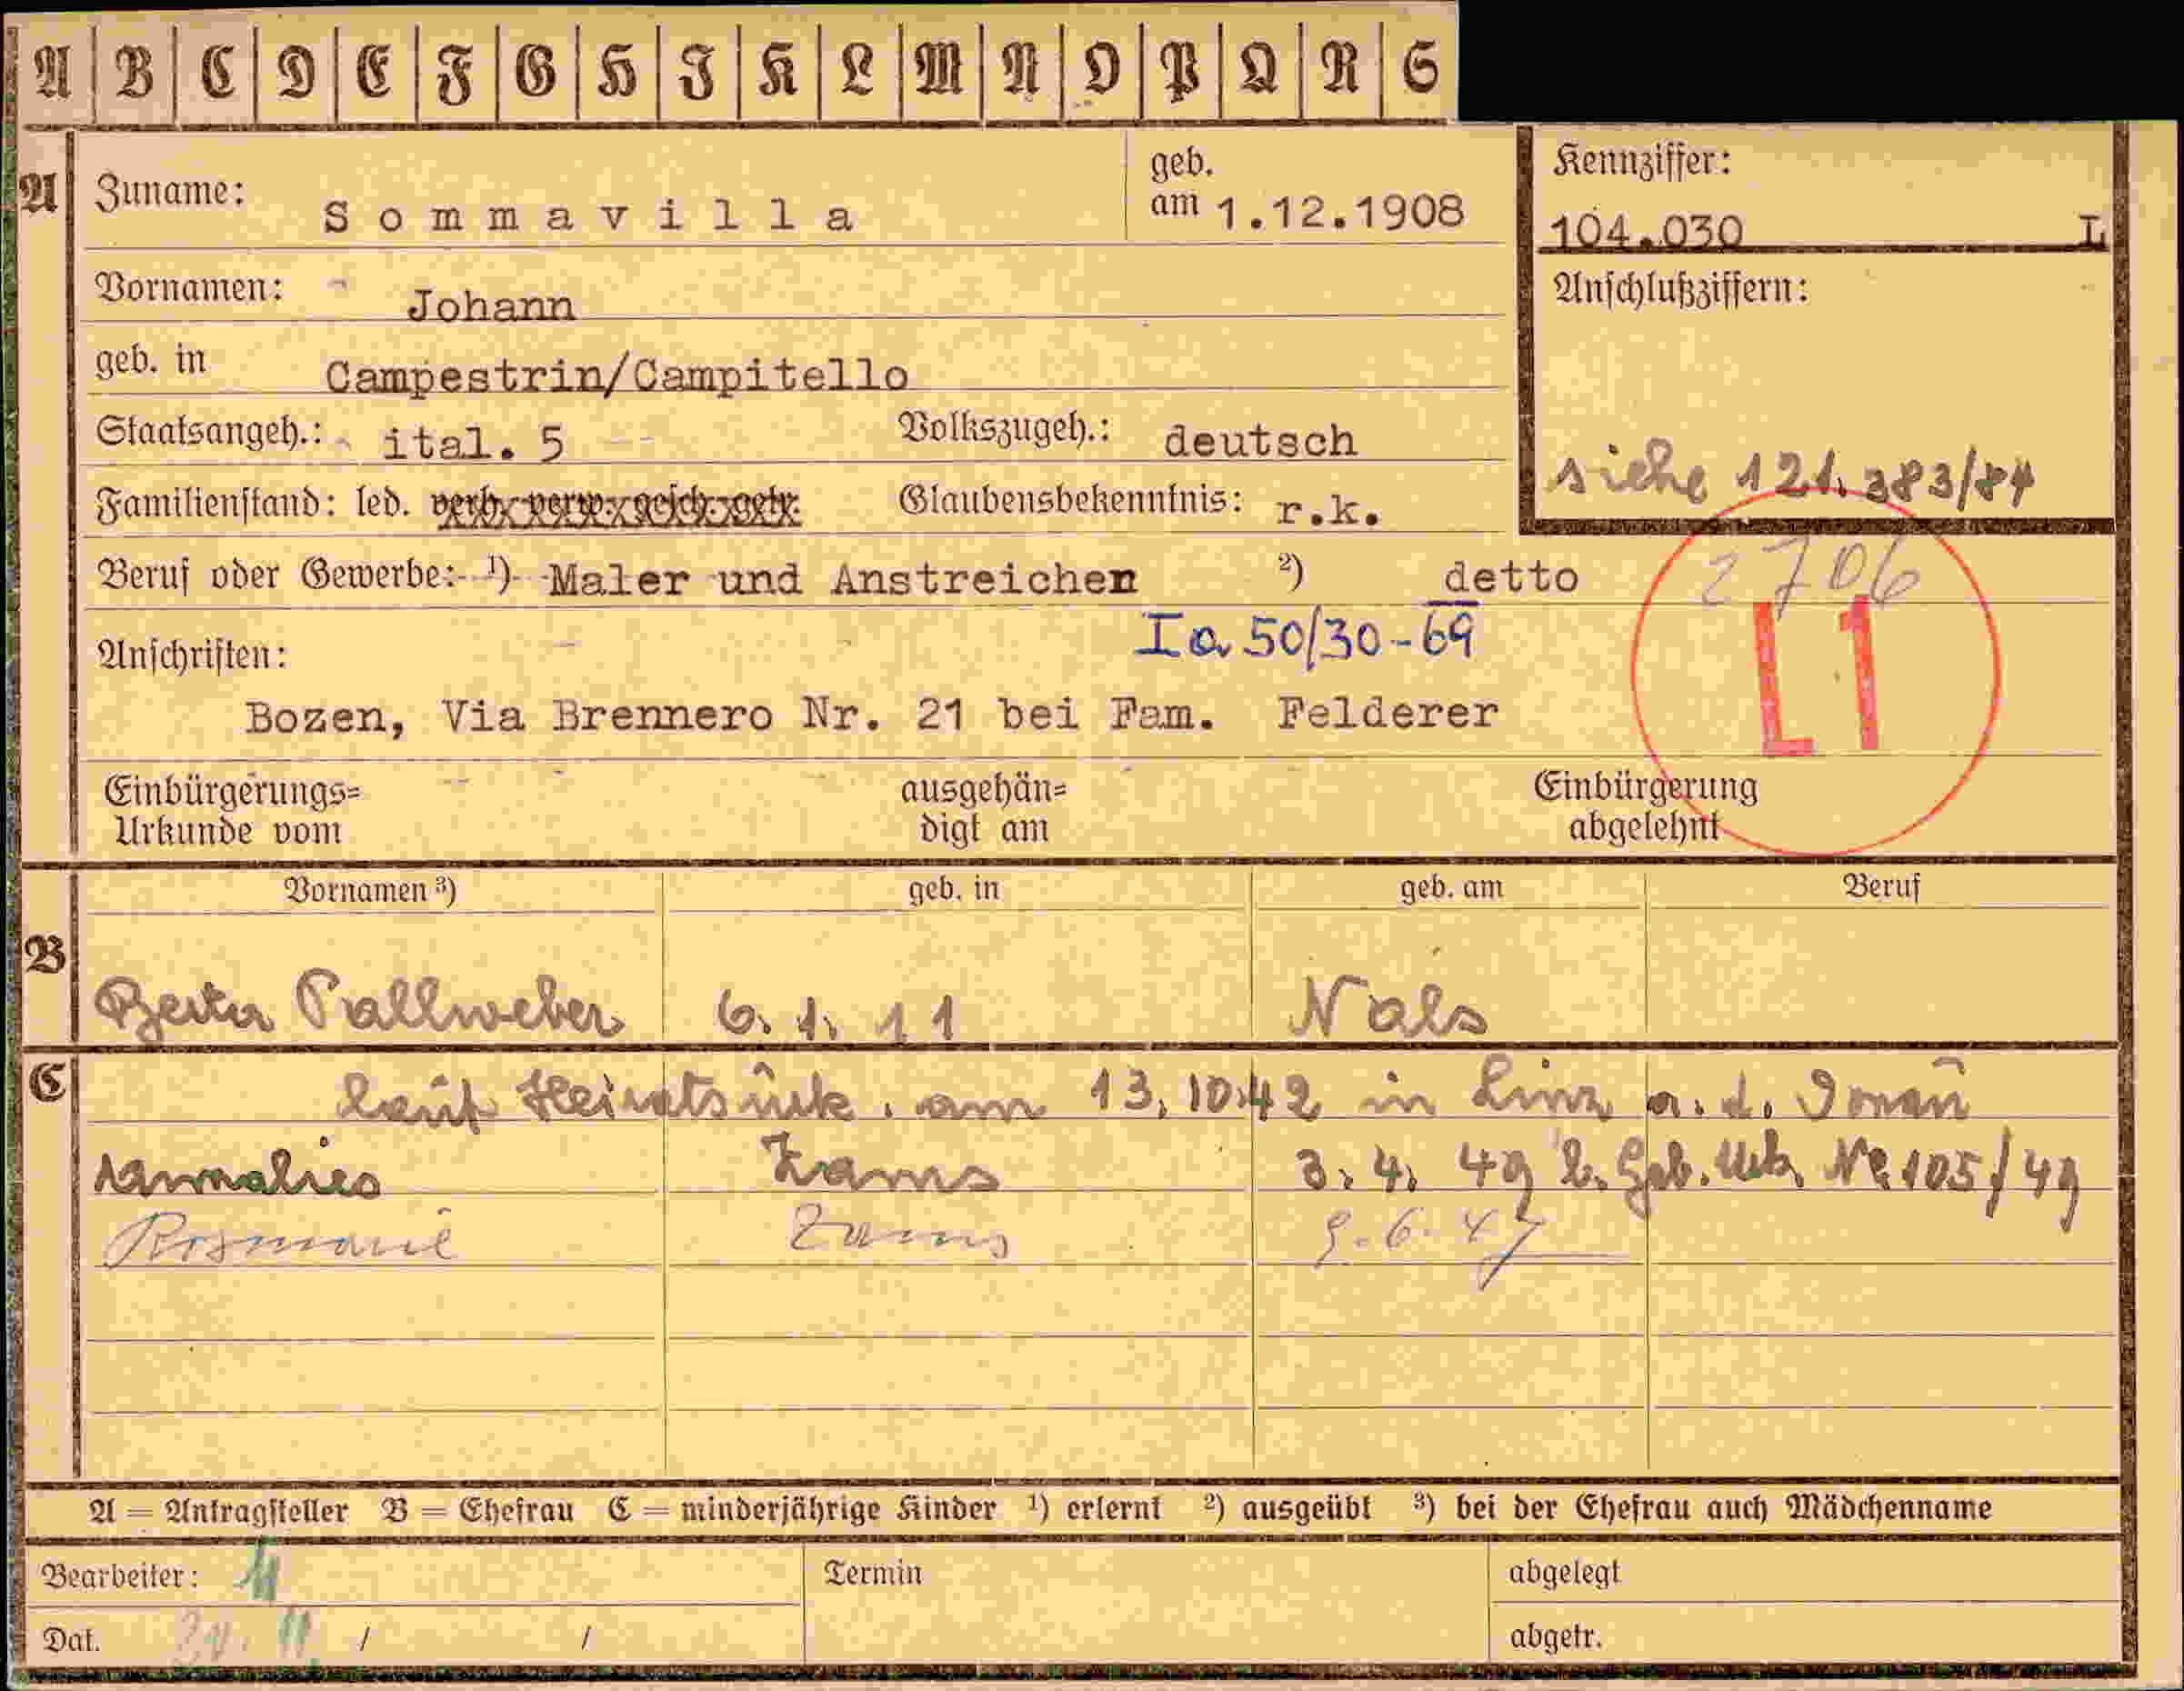 A B C D E F G H I K L M N O P Q R S
A
Zuname: Sommavilla
geb. am 1.12.1908
Kennziffer:
104.030 L
Vornamen: Johann
Anschlußziffern:
geb. in Campestrin/Campitello
Staatsangeh.: ital. 5 Volkszugeh.: deutsch
siehe 121.383/84
Familienstand: led. verh. verw. gesch. getr. Glaubensbekenntnis: r.k.
2706
Beruf oder Gewerbe: 1) Maler und Anstreichen 2) detto
L1
Ia 50/30-69
Anschriften:
Bozen, Via Brennero Nr. 21 bei Fam. Felderer
Einbürgerungs= ausgehän= Einbürgerung
Urkunde vom digt am abgelehnt
Vornamen 3) geb. in geb. am Beruf
B
Berta Pallweber 6. 1. 11 Nals
C
laut Heiratsurk. am 13.10.42 in Linz a. d. Donau
Annalies Zams 3. 4. 49 l. Geb. Urk. Nr. 105/49
Rosmarie Zams 9.6.47
A = Antragsteller B = Ehefrau C = minderjährige Kinder 1) erlernt 2) ausgeübt 3) bei der Ehefrau auch Mädchenname
Bearbeiter: Termin abgelegt
Dat. / / abgetr.